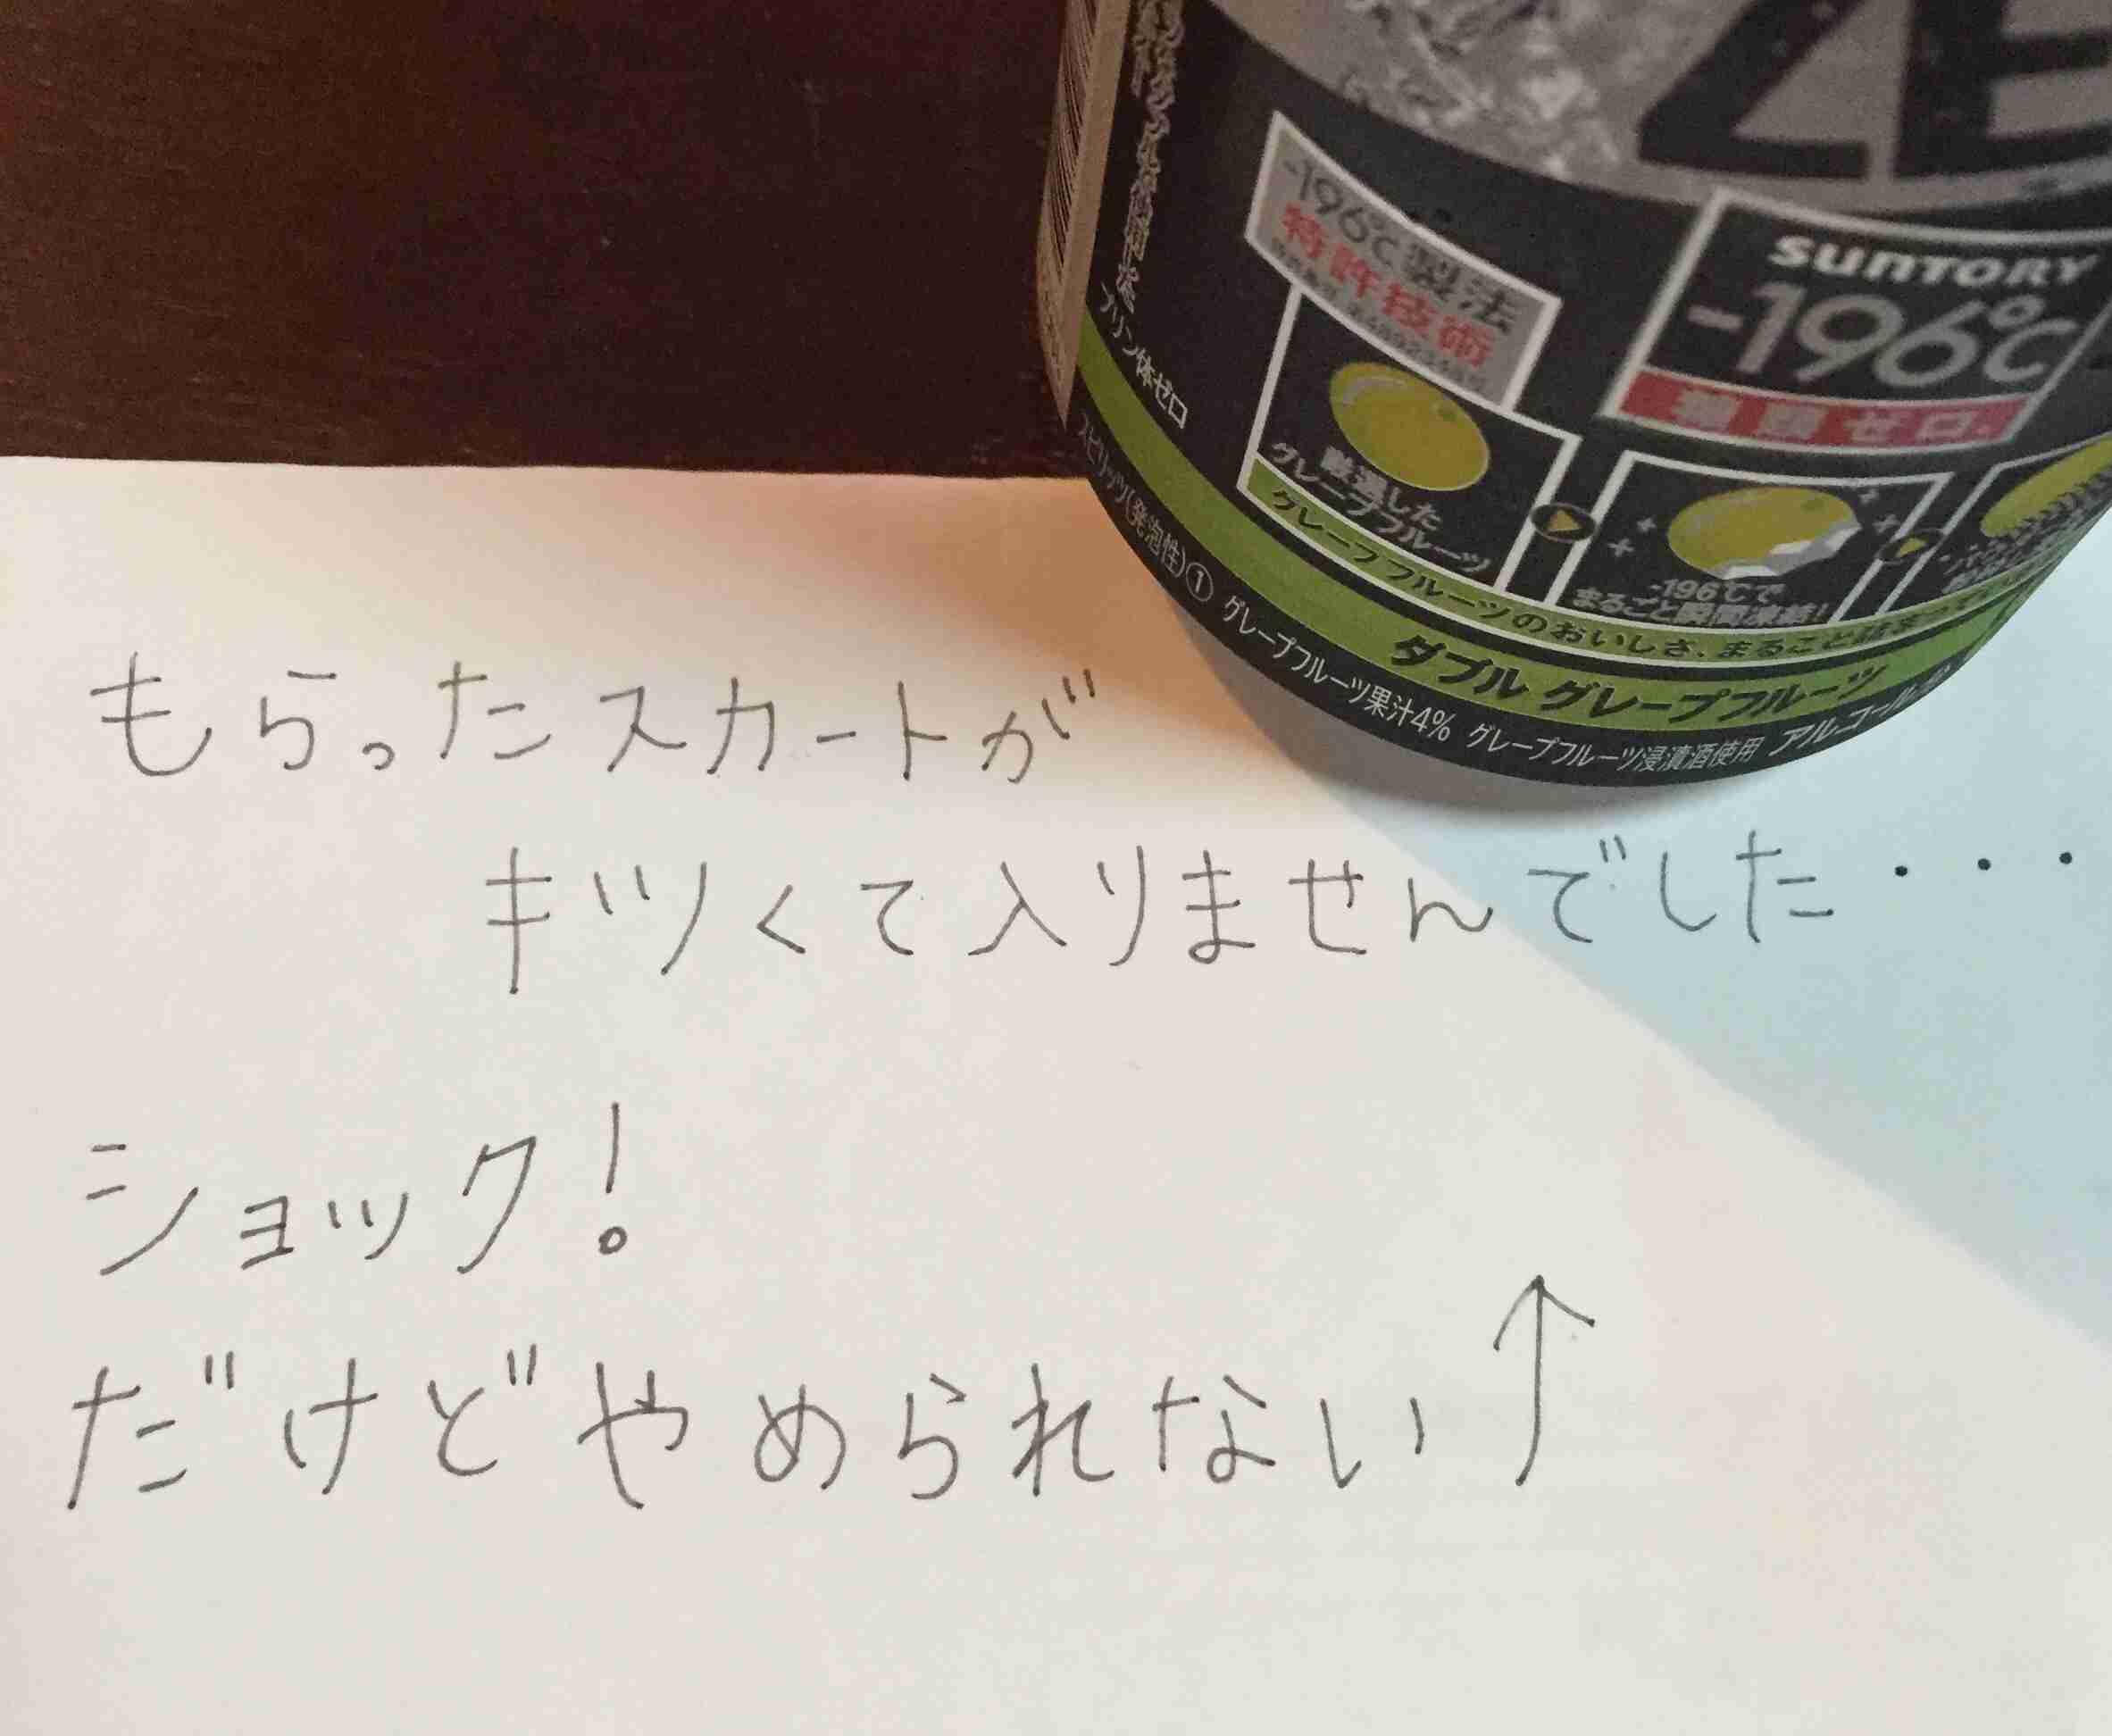 ZE
-196℃製法
特許技術
SUNTORY
-196℃
糖類ゼロ。
プリン体ゼロ
厳選した
グレープフルーツ
-196℃で
まるごと瞬間凍結!
グレープフルーツのおいしさ、まるごと
ダブル グレープフルーツ
スピリッツ(発泡性)① グレープフルーツ果汁4% グレープフルーツ浸漬酒使用 アルコール
もらったスカートが
キツくて入りませんでした・・・
ショック!
だけどやめられない↑